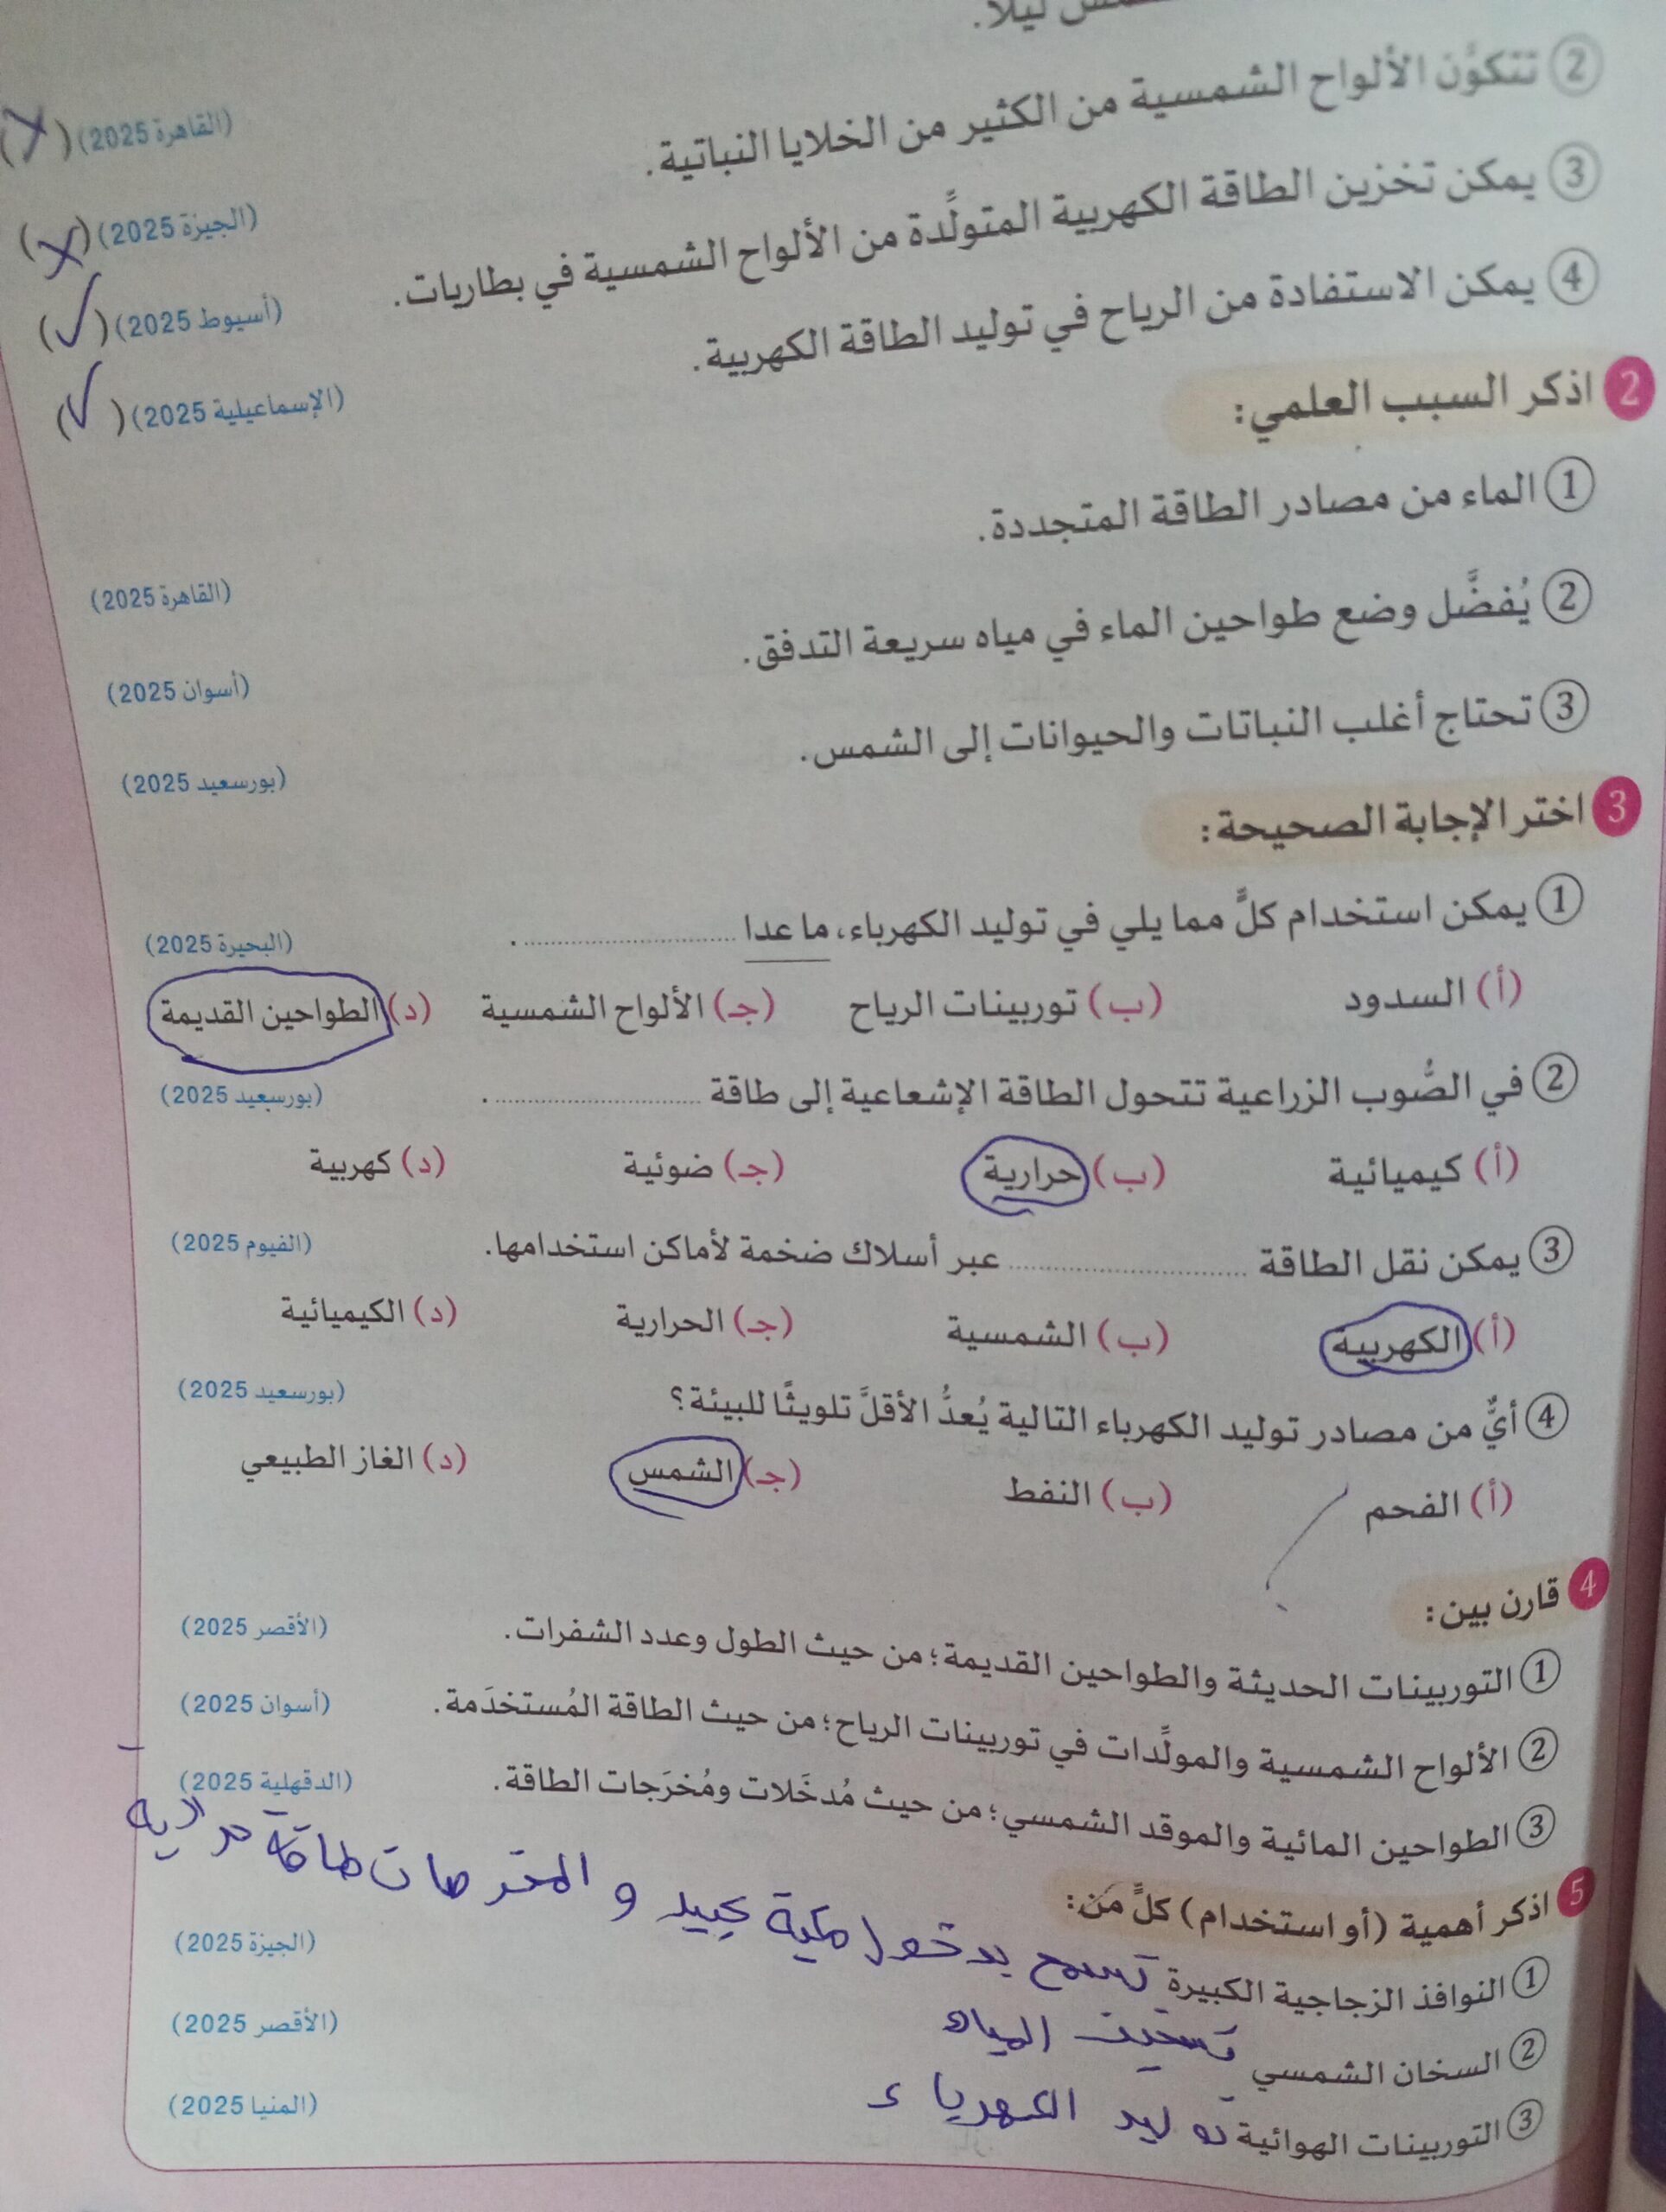 ليلًا.
(القاهرة 2025) (X)
② تتكوَّن الألواح الشمسية من الكثير من الخلايا النباتية. (الجيزة 2025) (X)
③ يمكن تخزين الطاقة الكهربية المتولِّدة من الألواح الشمسية في بطاريات. (أسيوط 2025) (✓)
④ يمكن الاستفادة من الرياح في توليد الطاقة الكهربية. (الإسماعيلية 2025) (✓)
2 اذكر السبب العلمي:
① الماء من مصادر الطاقة المتجددة. (القاهرة 2025)
② يُفضَّل وضع طواحين الماء في مياه سريعة التدفق. (أسوان 2025)
③ تحتاج أغلب النباتات والحيوانات إلى الشمس. (بورسعيد 2025)
3 اختر الإجابة الصحيحة:
① يمكن استخدام كلٍّ مما يلي في توليد الكهرباء، ما عدا .................... . (البحيرة 2025)
(أ) السدود (ب) توربينات الرياح (جـ) الألواح الشمسية (د) الطواحين القديمة
② في الصُّوب الزراعية تتحول الطاقة الإشعاعية إلى طاقة .................... . (بورسعيد 2025)
(أ) كيميائية (ب) حرارية (جـ) ضوئية (د) كهربية
③ يمكن نقل الطاقة .................... عبر أسلاك ضخمة لأماكن استخدامها. (الفيوم 2025)
(أ) الكهربية (ب) الشمسية (جـ) الحرارية (د) الكيميائية
④ أيٌّ من مصادر توليد الكهرباء التالية يُعدُّ الأقلَّ تلويثًا للبيئة؟ (بورسعيد 2025)
(أ) الفحم (ب) النفط (جـ) الشمس (د) الغاز الطبيعي
4 قارن بين:
① التوربينات الحديثة والطواحين القديمة؛ من حيث الطول وعدد الشفرات. (الأقصر 2025)
② الألواح الشمسية والمولِّدات في توربينات الرياح؛ من حيث الطاقة المُستخدَمة. (أسوان 2025)
③ الطواحين المائية والموقد الشمسي؛ من حيث مُدخَلات ومُخرَجات الطاقة. (الدقهلية 2025)
5 اذكر أهمية (أو استخدام) كلٍّ من:
① النوافذ الزجاجية الكبيرة تسمح بدخول طاقة حرارية (الجيزة 2025)
② السخان الشمسي تسخين المياه (الأقصر 2025)
③ التوربينات الهوائية توليد الكهرباء (المنيا 2025)